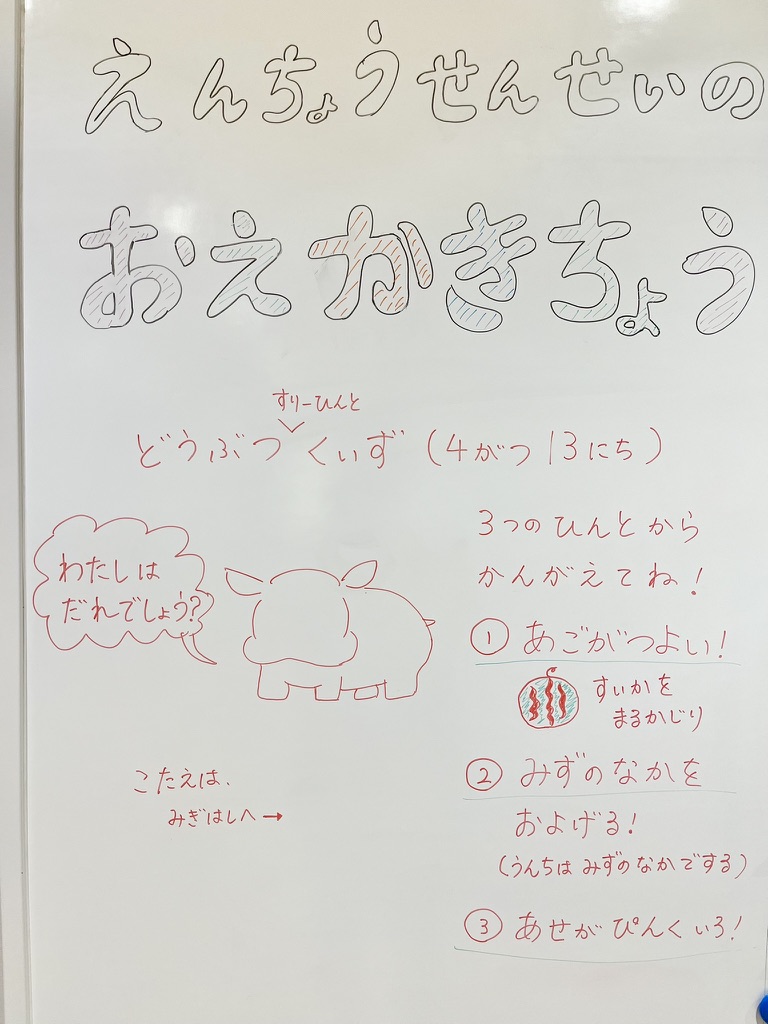 えんちょうせんせいの
おえかきちょう
すりーひんと
どうぶつくいず（4がつ13にち）
わたしは
だれでしょう?
3つのひんとから
かんがえてね！
① あごがつよい！
すいかを
まるかじり
② みずのなかを
およげる！
（うんちはみずのなかでする）
③ あせがぴんくいろ！
こたえは、
みぎはしへ→